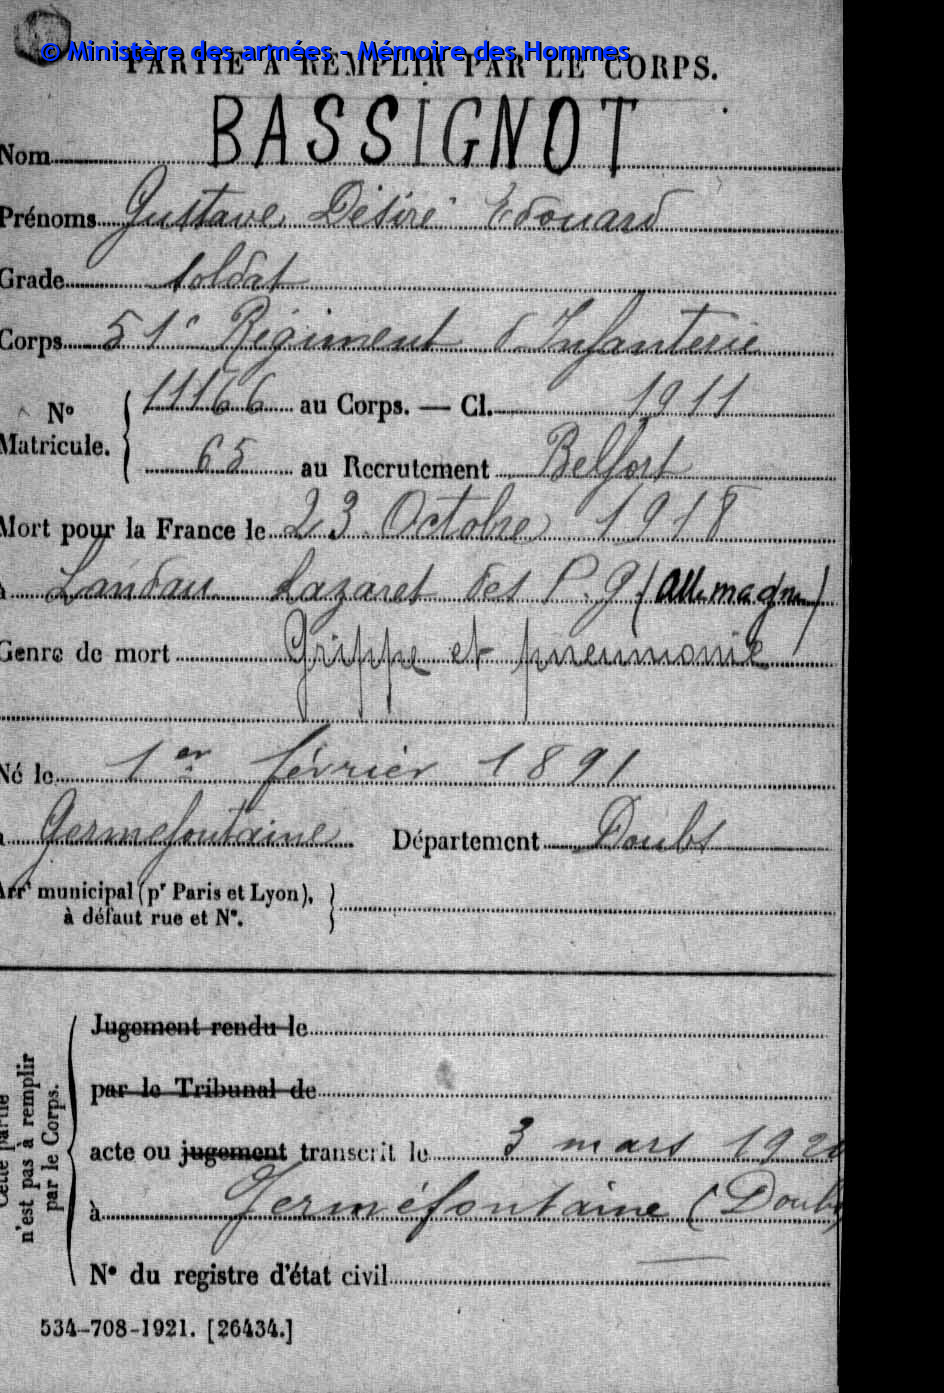 © Ministère des armées - Mémoire des Hommes
PARTIE À REMPLIR PAR LE CORPS.
Nom BASSIGNOT
Prénoms Gustave Désiré Edouard
Grade soldat
Corps 51e Régiment d'Infanterie
No Matricule. { 11166 au Corps. — Cl. 1911
65 au Recrutement Belfort
Mort pour la France le 23 Octobre 1918
à Landau Lazaret des P. G. (Allemagne)
Genre de mort Grippe et pneumonie
Né le 1er février 1891
à Germefontaine Département Doubs
Arrt municipal (pr Paris et Lyon), à défaut rue et No.
Cette partie n'est pas à remplir par le Corps.
Jugement rendu le
par le Tribunal de
acte ou jugement transcrit le 3 mars 192
à Germéfontaine (Doubs)
No du registre d'état civil
534-708-1921. [26434.]